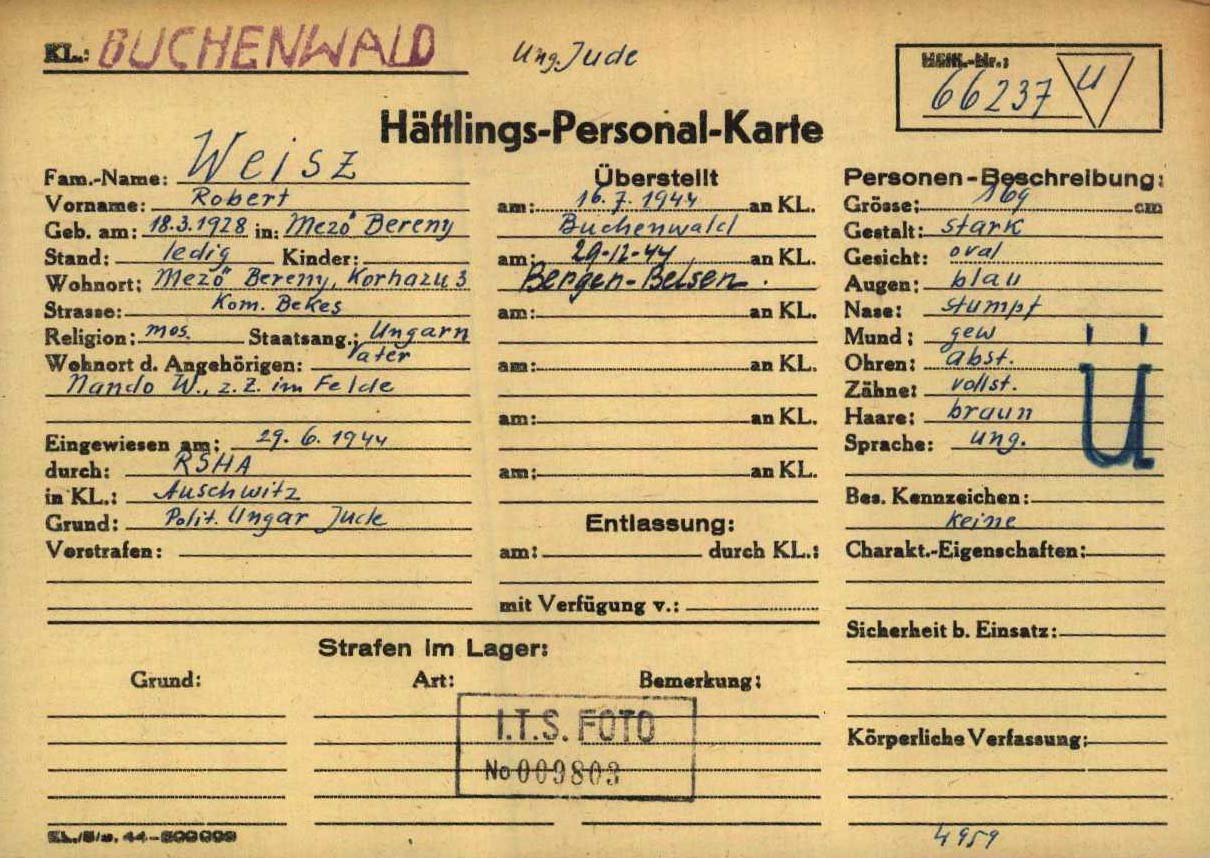 KL.: BUCHENWALD
Ung. Jude
Häftl.-Nr.:
66237 U
Häftlings-Personal-Karte
Fam.-Name: Weisz
Vorname: Robert
Geb. am: 18.3.1928 in: Mezö Bereny
Stand: ledig Kinder:
Wohnort: Mezö Bereny, Korhazu 3
Strasse: Kom. Bekes
Religion: mos. Staatsang.: Ungarn
Wohnort d. Angehörigen: Vater
Nando W., z.Z. im Felde
Eingewiesen am: 29.6.1944
durch: RSHA
in KL.: Auschwitz
Grund: Polit. Ungar Jude
Vorstrafen:
Überstellt
am: 16.7.1944 an KL.
Buchenwald
am: 29-12-44 an KL.
Bergen-Belsen.
am: an KL.
am: an KL.
am: an KL.
am: an KL.
Entlassung:
am: durch KL.:
mit Verfügung v.:
Personen-Beschreibung:
Grösse: 169 cm
Gestalt: stark
Gesicht: oval
Augen: blau
Nase: stumpf
Mund: gew
Ohren: abst.
Zähne: vollst.
Haare: braun
Sprache: ung.
Ü
Bes. Kennzeichen:
keine
Charakt.-Eigenschaften:
Sicherheit b. Einsatz:
Körperliche Verfassung:
Strafen im Lager:
Grund: Art: Bemerkung:
I.T.S. FOTO
No 009803
4959